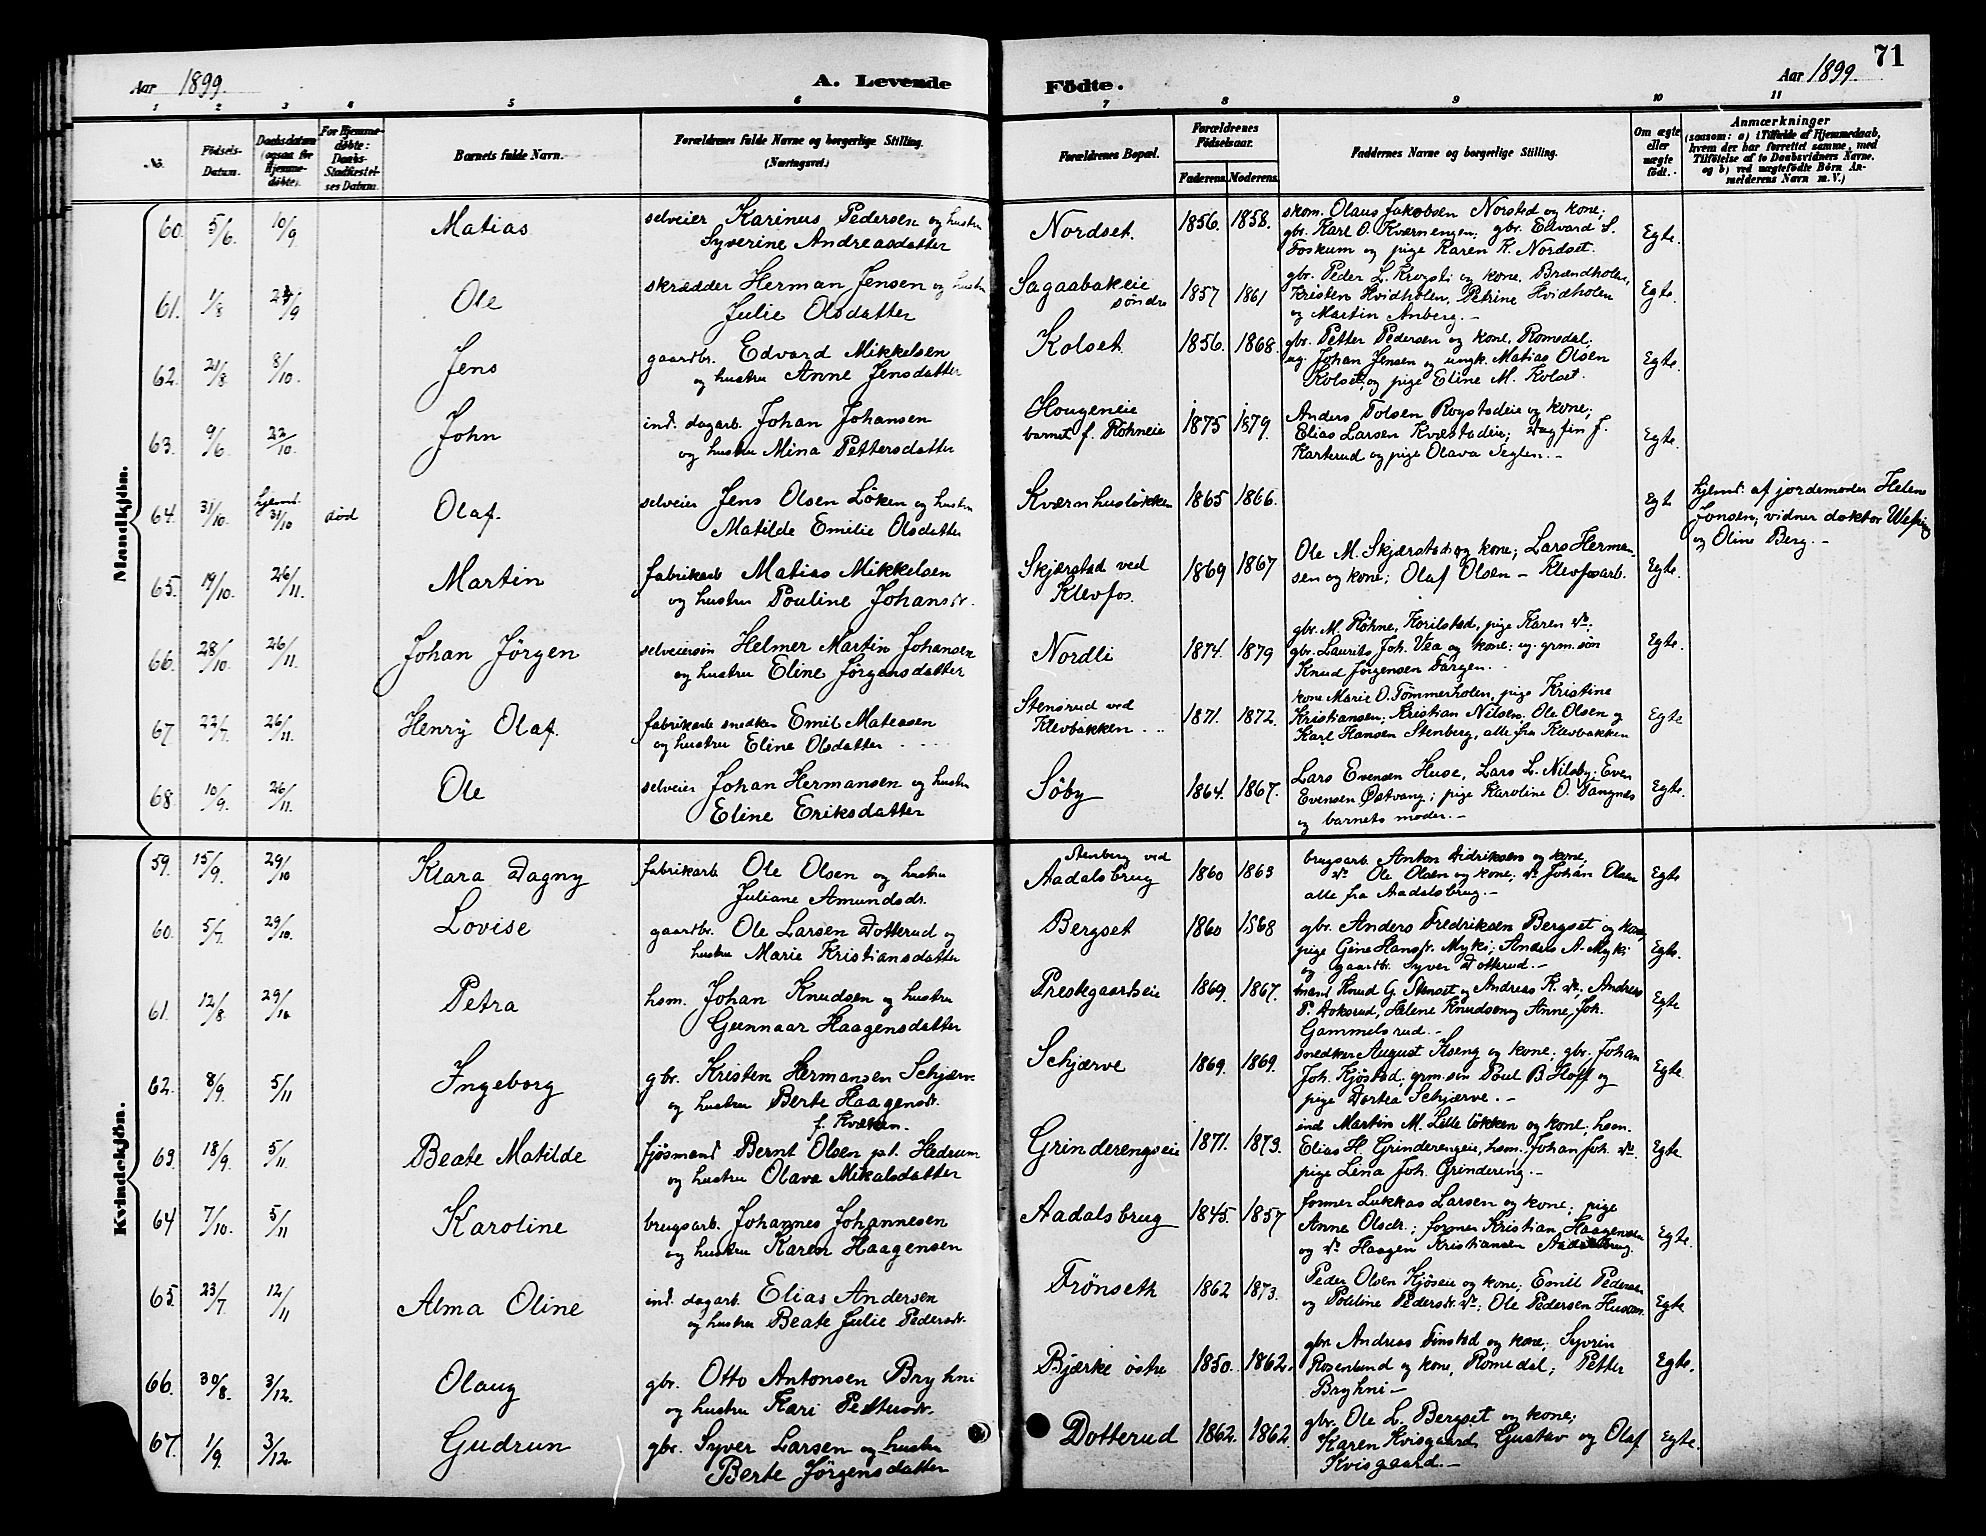 71
Aar 1899.
A. Levende
Födte.
Aar 1899.
1 2 3 4 5 6 7 8 9 10 11
No.
Födsels-Datum.
Daabsdatum (ogsaa for Hjemme-döbte).
For Hjemme-döbte: Daabs-Stadfæstelses Datum.
Barnets fulde Navn.
Forældrenes fulde Navne og borgerlige Stilling. (Næringsvei.)
Forældrenes Bopæl.
Forældrenes Födselsaar.
Faderens. Moderens.
Faddernes Navne og borgerlige Stilling.
Om ægte eller uægte födt.
Anmærkninger
(saasom: a) i Tilfælde af Hjemmedaab, hvem der har forrettet samme, med Tilföielse af to Daabsvidners Navne, og b) ved uægtefödte Börn Anmelderens Navn m. V.)
Mandkjön.
60. 5/6. 10/9 Matias selveier Karinus Pedersen og hustru
Syverine Andreasdatter
Nordset. 1856. 1858. skom. Olaus Jakobsen Norstad og kone;
gbr. Karl O. Kværnengen; gbr. Edvard S.
Foskum og pige Karen K. Nordset. Egte.
61. 1/8 24/9 Ole skrædder Herman Jensen og hustru
Julie Olsdatter
Sagaabakeie
søndre 1857 1861 gbr. Peder L. Krogsti og kone, Brændholen,
Kristen Hvidholen, Petrine Hvidholen
og Martin Anberg. – Egte.
62. 21/8. 8/10. Jens gaardbr. Edvard Mikkelsen
og hustru Anne Jensdatter
Kolset. 1856. 1868. gbr. Petter Pedersen og kone, Romedal,
ug. Johan Jensen og ungk. Matias Olsen
Kolset, og pige Eline M. Kolset. Egte.
63. 9/6. 22/10. John ind. dagarb. Johan Johansen
og hustru Mina Pettersdatter
Hougeneie
barnet f. Röhneie 1875 1879. Anders Tolsen Rogstadeie og kone;
Elias Larsen Kvæstadeie; Dagfin J.
Karterud og pige Olava Seglen. – Egte.
64. 31/10. hjemd. 31/10 død Olaf. selveier Jens Olsen Löken og hustru
Matilde Emilie Olsdatter
Kværnhusløkken 1865 1866. Egt hjemd. af jordemoder Helene
Jonsen; vidner doktor
og Oline Berg. –
65. 19/10. 26/11. Martin fabrikarb Matias Mikkelsen
og hustru Pouline Johansdr.
Skjærstad ved
Klevfos. 1869 1867 Ole M. Skjærstad og kone; Lars Herman-
sen og kone; Olaf Olsen – Klevfosarb. Egte.
66. 28/10. 26/11. Johan Jörgen selveiersön Helmer Martin Johansen
og hustru Eline Jörgensdatter
Nordli 1874. 1879 gbr. M. Röhne, Korilstad, pige Karen do;
gbr. Laurits Joh. Vea og kone; ug. grm. søn
Knud Jørgensen Fargen. Egte.
67. 22/7. 26/11. Henry Olaf. fabrikarb snedker Emil Mateasen
og hustru Eline Olsdatter
Stensrud ved
Klevbakken 1871. 1872. kone Marie O. Tömmerholen, pige Kristine
Kristiansen; Kristian Nilsen; Ole Olsen og
Karl Hansen Stenberg, alle fra Klevbakken Egte
68. 10/9. 26/11. Ole selveier Johan Hermansen og hustru
Eline Eriksdatter
Söby 1864. 1867. Lars Evensen Huse, Lars L. Nilsby; Even
Evensen Østvang; pige Karoline O. Tangnæs
og barnets moder. – Egte.
Kvindekjön.
59. 15/9. 29/10 Klara Dagny fabrikarb Ole Olsen og hustru
Juliane Amundsdr.
Stenberg ved
Aadalsbrug 1860 1863 brugsarb. Anton Didriksen og kone;
do Ole Olsen og kone; do Johan Olsen
alle fra Aadalsbrug. – Egte
60. 5/7. 29/10. Lovise gaardbr. Ole Larsen Dotterud og
hustru Marie Kristiansdatter
Bergset 1860 1868 gbr. Anders Fredriksen Bergset og kone
pige Gine Hansdr. Myki; Anders A. Myki
og gaardbr. Syver Dotterud. – Egte.
61. 12/8 29/10 Petra hsm. Johan Knudsen og hustru
Gunnaar Haagensdatter
Prestgaardseie 1869. 1867. mand Knud G. Stenset og Andreas K. do; Andreas
P. Aoksrud, Helene Knudsen og Anne Joh.
Gammelsrud. – Egte
62. 8/9. 5/11 Ingeborg gbr. Kristen Hermansen Schjærv.
og hustru Berte Haagensdr.
f. Kvæken.
Schjærve 1869. 1869. snedker August Aseng og kone; gbr. Johan
Joh. Kjöstad; grm. søn Poul B. Hoff og
pige Dortea Schjærve. – Egte
63. 18/9. 5/11. Beate Matilde fjøsmand Bernt Olsen pl. Hedrum
og hustru Olava Mikalsdatter
Grinderengseie 1871. 1873. ind Martin M. Lille løkken og kone hsm.
Elias H. Grinderengeie, hsm. Johan Joh. do.
pige Lena Joh. Grindereng. – Egte
64 7/10. 5/11 Karoline brugsarb. Johannes Johannesen
og hustru Karen Haagensen
Aadalsbrug 1845. 1857 former Lukkas Larsen og kone; pige
Anne Olsdr.; former Kristian Haagensen
og do Haagen Kristiansen Aadalsbrug. Egte.
65. 23/7. 12/11 Alma Oline ind. dagarb. Elias Andersen
og hustru Beate Julie Pedersdr.
Frönseth 1862 1873. Peder Olsen Kjöseie og kone; Emil Pedersen
og Poline Pedersdr. do; Ole Pedersen Husom. Egte
66. 30/8. 3/12. Olaug gbr. Otto Antonsen Bryhni
og hustru Kari Pettersdr.
Bjærke östre 1850. 1862. gbr. Andreas Finstad og kone; Syvrin
Rosenlund og kone, Romedal; Petter
Bryhni – Egte.
67. 1/9. 3/12. Gudrun gbr. Syver Larsen og hustru
Berte Jörgensdatter
Dotterud 1862. 1862. gbr. Ole L. Bergset og kone;
Karen Kvisgaard, Gustav og Olaf
Kvisgaard. – Egte.